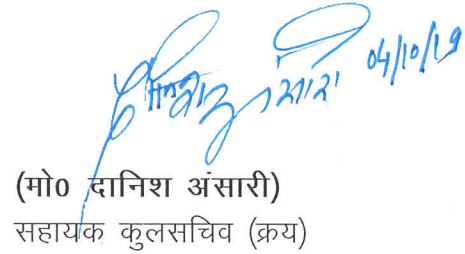 04/10/19
(मो0 दानिश अंसारी)
सहायक कुलसचिव (क्रय)